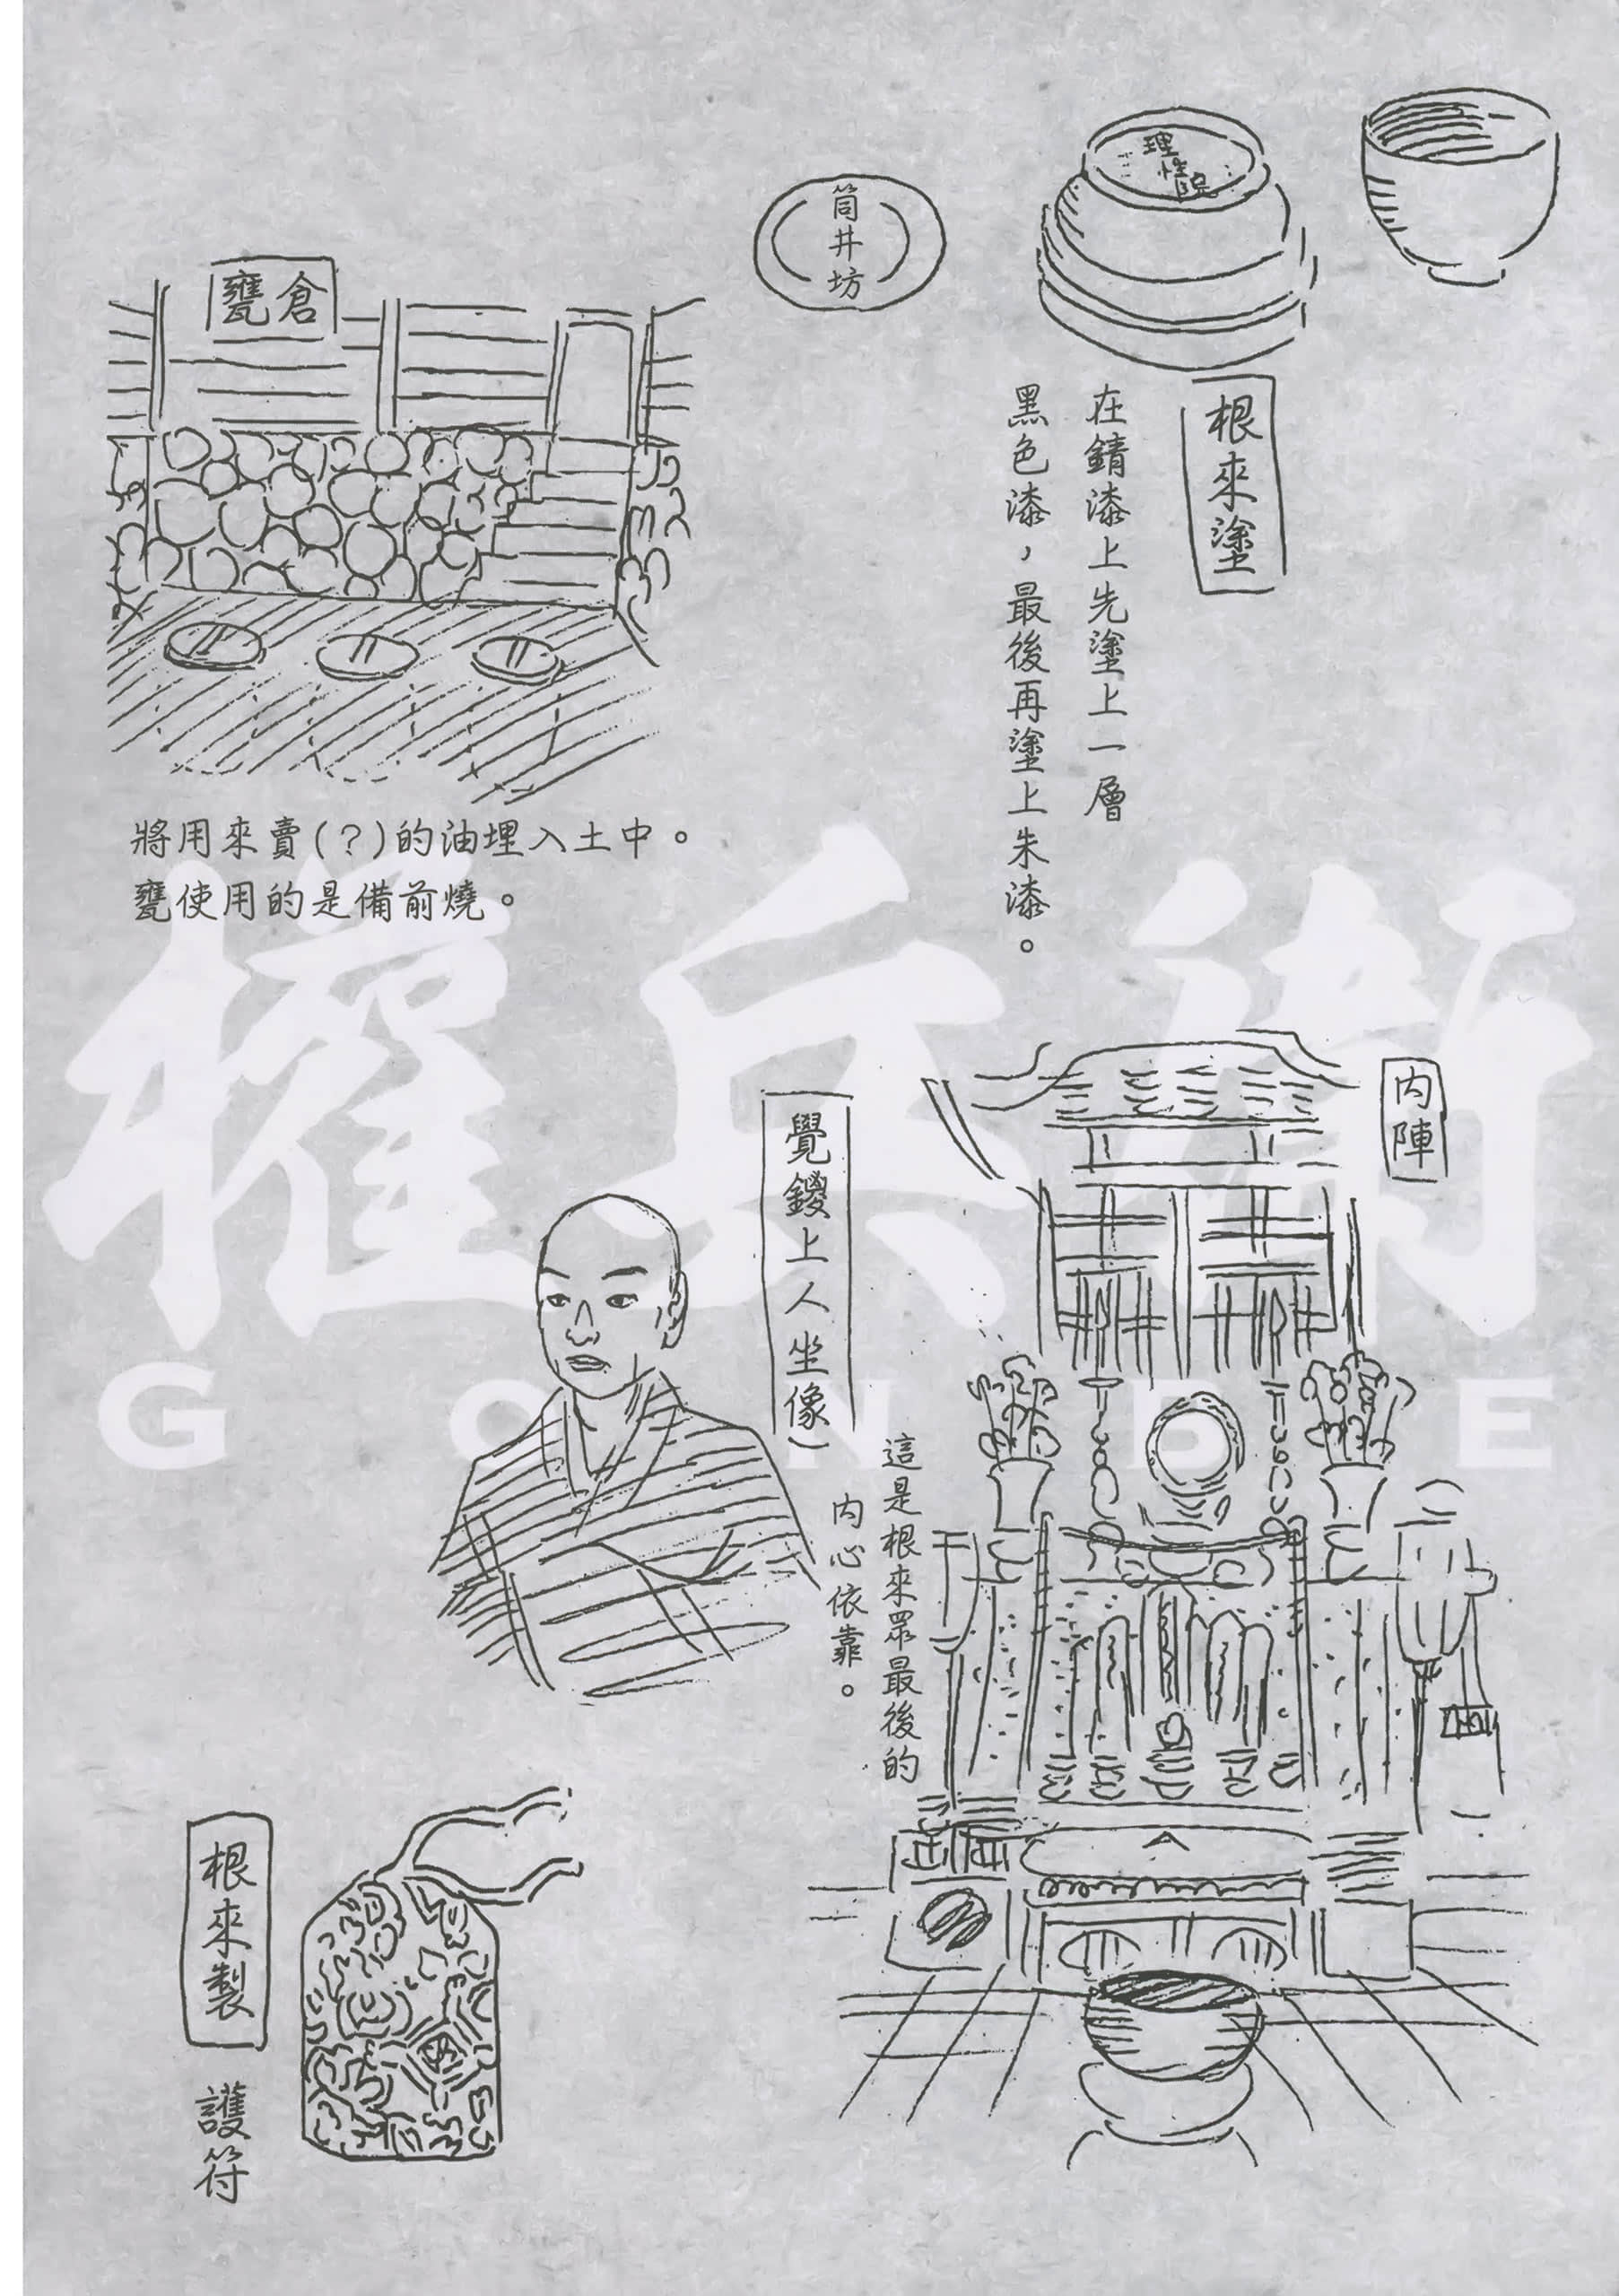 理
性院
筒井坊
根來塗
在錆漆上先塗上一層
黑色漆，最後再塗上朱漆。
甕倉
將用來賣(?)的油埋入土中。
甕使用的是備前燒。
權兵衛
GONBE
內陣
覺鑁上人坐像
這是根來眾最後的
內心依靠。
根來製
護符